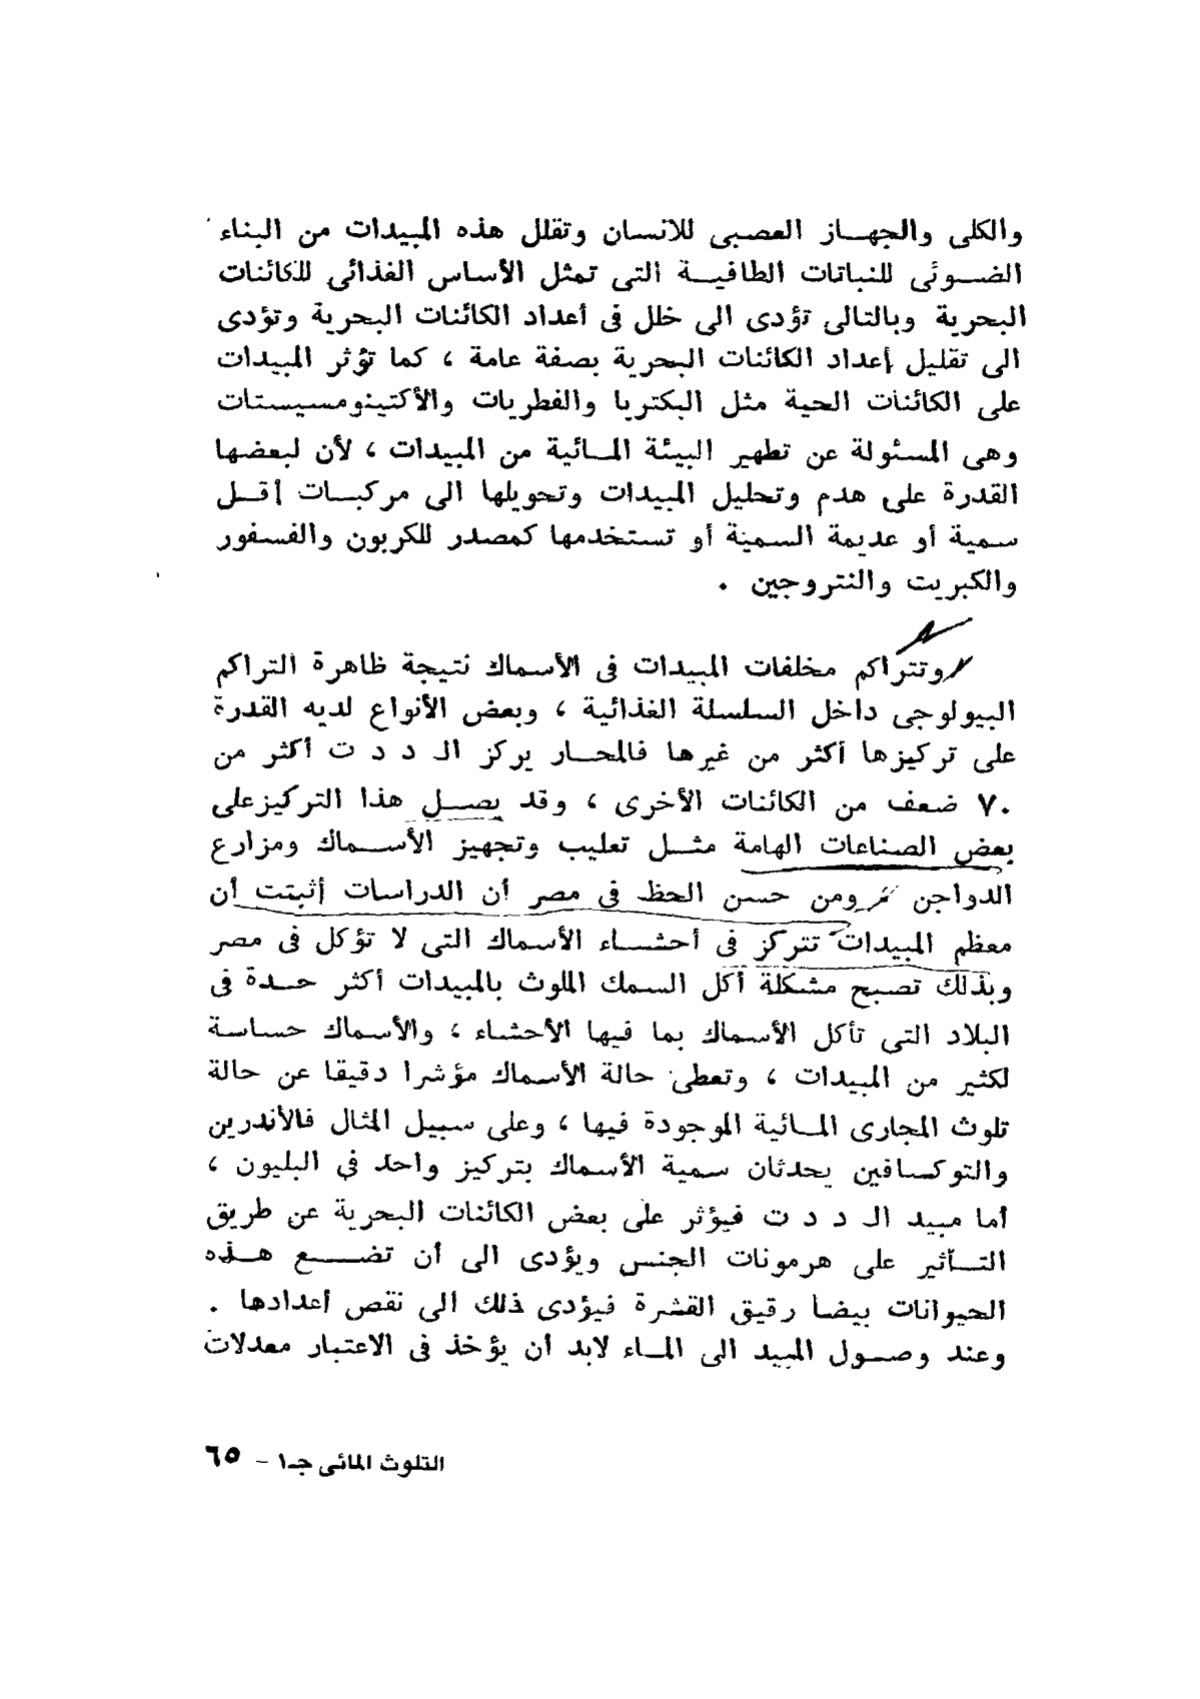 والكلى والجهاز العصبى للانسان وتقلل هذه المبيدات من البناء
الضوئى للنباتات الطافية التى تمثل الأساس الغذائى للكائنات
البحرية وبالتالى تؤدى الى خلل فى أعداد الكائنات البحرية وتؤدى
الى تقليل أعداد الكائنات البحرية بصفة عامة ، كما تؤثر المبيدات
على الكائنات الحية مثل البكتريا والفطريات والأكتينومسيستات
وهى المسئولة عن تطهير البيئة المائية من المبيدات ، لأن لبعضها
القدرة على هدم وتحليل المبيدات وتحويلها الى مركبات أقل
سمية أو عديمة السمية أو تستخدمها كمصدر للكربون والفسفور
والكبريت والنتروجين .
وتتراكم مخلفات المبيدات فى الأسماك نتيجة ظاهرة التراكم
البيولوجى داخل السلسلة الغذائية ، وبعض الأنواع لديه القدرة
على تركيزها أكثر من غيرها فالمحار يركز الـ د د ت أكثر من
٧٠ ضعف من الكائنات الأخرى ، وقد يصل هذا التركيز على
بعض الصناعات الهامة مثل تعليب وتجهيز الأسماك ومزارع
الدواجن ومن حسن الحظ فى مصر أن الدراسات أثبتت أن
معظم المبيدات تتركز فى أحشاء الأسماك التى لا تؤكل فى مصر
وبذلك تصبح مشكلة أكل السمك الملوث بالمبيدات أكثر حدة فى
البلاد التى تأكل الأسماك بما فيها الأحشاء ، والأسماك حساسة
لكثير من المبيدات ، وتعطى حالة الأسماك مؤشرا دقيقا عن حالة
تلوث المجارى المائية الموجودة فيها ، وعلى سبيل المثال فالأندرين
والتوكسافين يحدثان سمية الأسماك بتركيز واحد فى البليون ،
أما مبيد الـ د د ت فيؤثر على بعض الكائنات البحرية عن طريق
التأثير على هرمونات الجنس ويؤدى الى أن تضع هذه
الحيوانات بيضا رقيق القشرة فيؤدى ذلك الى نقص أعدادها .
وعند وصول المبيد الى الماء لابد أن يؤخذ فى الاعتبار معدلات
التلوث المائى جـ١ – ٦٥